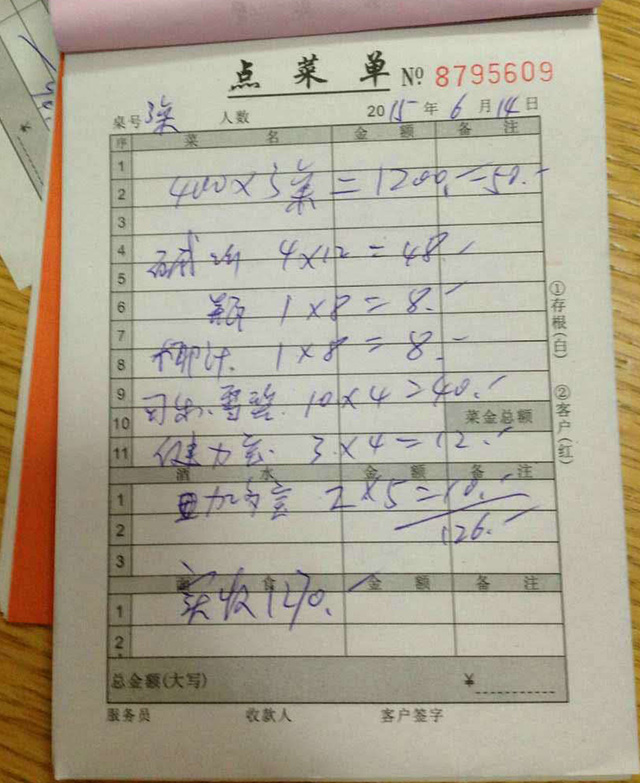 点 菜 单 № 8795609
桌号 3桌 人数 2015年 6月 14日
序 菜 名 金 额 备 注
1
2 400×3桌=1200.=50.-
3
4 4×12=48
5
6 1×8=8.
7
8 椰汁. 1×8=8.
9 可乐.雪碧. 10×4=40.
10 菜金总额
11 健力宝. 3.×4=12.
酒 水 金 额 备 注
1 加多宝 2×5=10.
2 126.
3
面 食 金 额 备 注
1 实收1270.
2
总金额(大写) ¥
服务员 收款人 客户签字
①存根(白) ②客户(红)